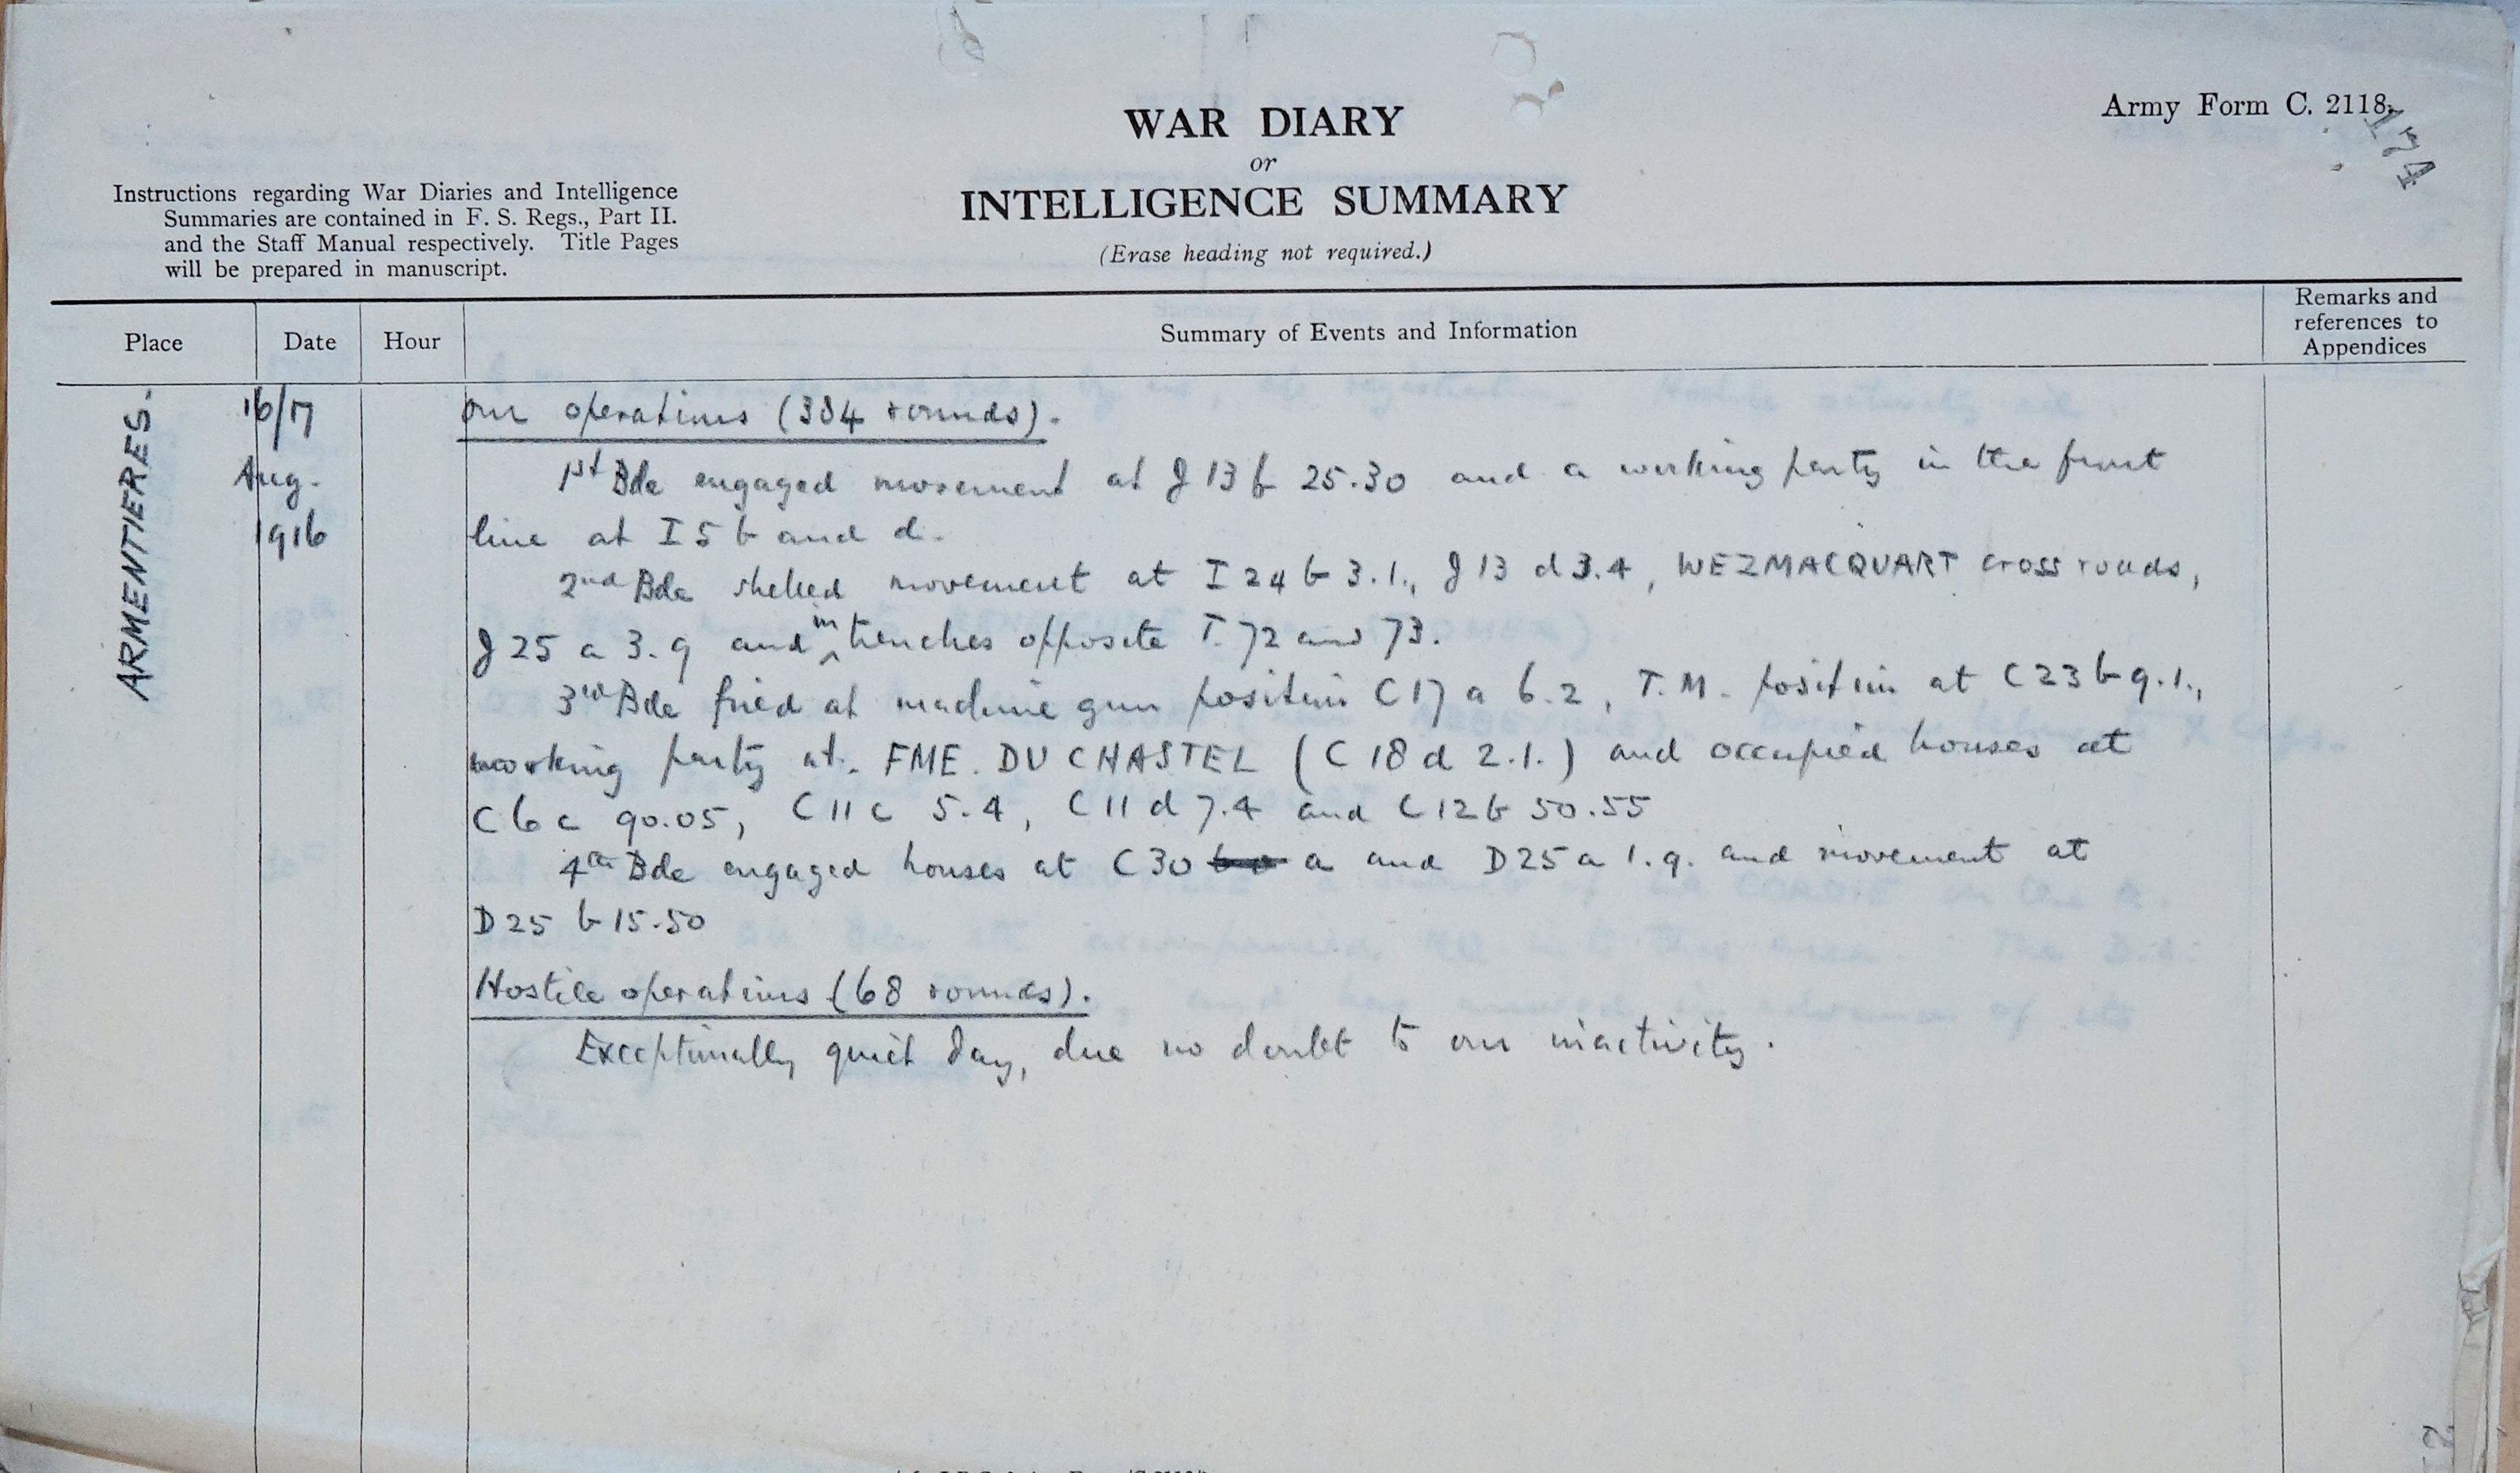 Army Form C. 2118.
174
WAR DIARY
or
INTELLIGENCE SUMMARY
(Erase heading not required.)
Instructions regarding War Diaries and Intelligence
Summaries are contained in F. S. Regs., Part II.
and the Staff Manual respectively. Title Pages
will be prepared in manuscript.
Place Date Hour Summary of Events and Information Remarks and references to Appendices
ARMENTIERES.
16/17
Aug.
1916
Our operations (384 rounds).
1st Bde engaged movement at J 13 b 25.30 and a working party in the front
line at I 5 b and d.
2nd Bde shelled movement at I 24 b 3.1., J 13 d 3.4, WEZMACQUART cross roads,
J 25 a 3.9 and in trenches opposite T. 72 and 73.
3rd Bde fired at machine gun position C 17 a 6.2, T.M. position at C 23 b 9.1.,
working party at. FME. DU CHASTEL (C 18 d 2.1.) and occupied houses at
C 6 c 90.05, C 11 c 5.4, C 11 d 7.4 and C 12 b 50.55
4th Bde engaged houses at C 30 a and D 25 a 1.9. and movement at
D 25 b 15.50
Hostile operations (68 rounds).
Exceptionally quiet day, due no doubt to our inactivity.